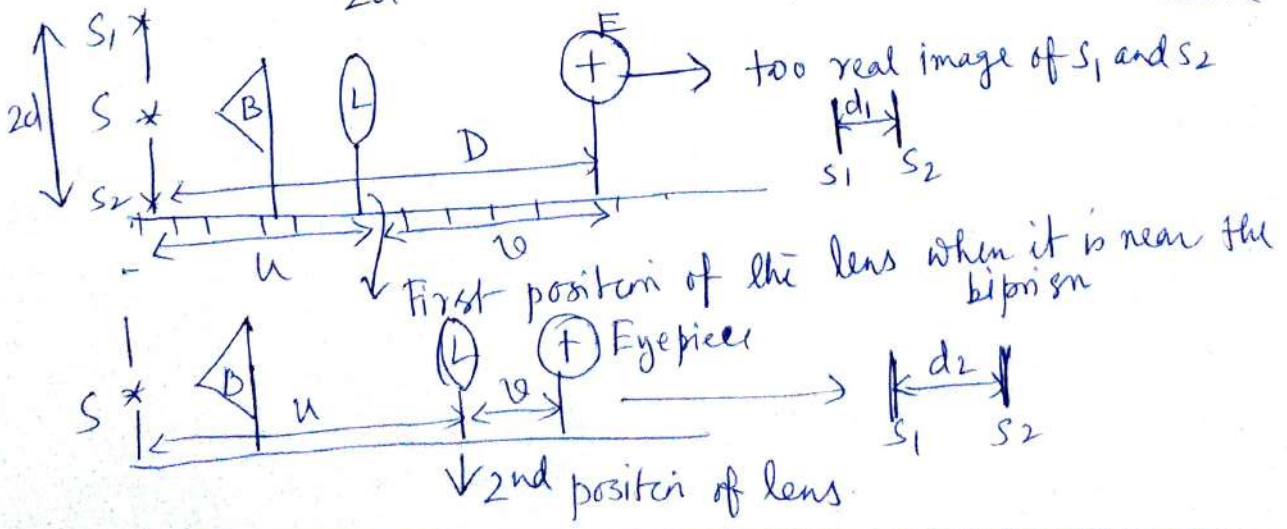 2d
S1
E
too real image of S1 and S2
2d
S
B
L
D
d1
S1
S2
S2
u
v
First position of the lens when it is near the
biprism
L
Eyepiece
d2
S
B
u
v
S1
S2
2nd position of lens.